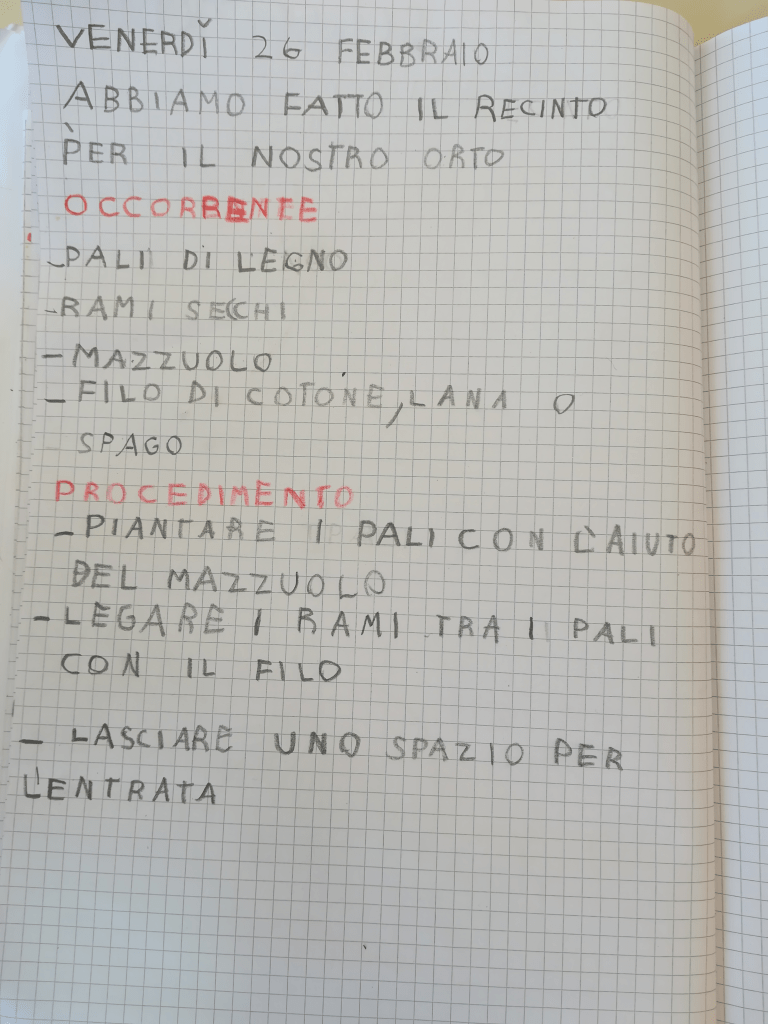 VENERDÌ 26 FEBBRAIO
ABBIAMO FATTO IL RECINTO
PER IL NOSTRO ORTO
OCCORRENTE
-PALI DI LEGNO
-RAMI SECCHI
-MAZZUOLO
- FILO DI COTONE, LANA O
SPAGO
PROCEDIMENTO
-PIANTARE I PALI CON L'AIUTO
DEL MAZZUOLO
-LEGARE I RAMI TRA I PALI
CON IL FILO
- LASCIARE UNO SPAZIO PER
L'ENTRATA